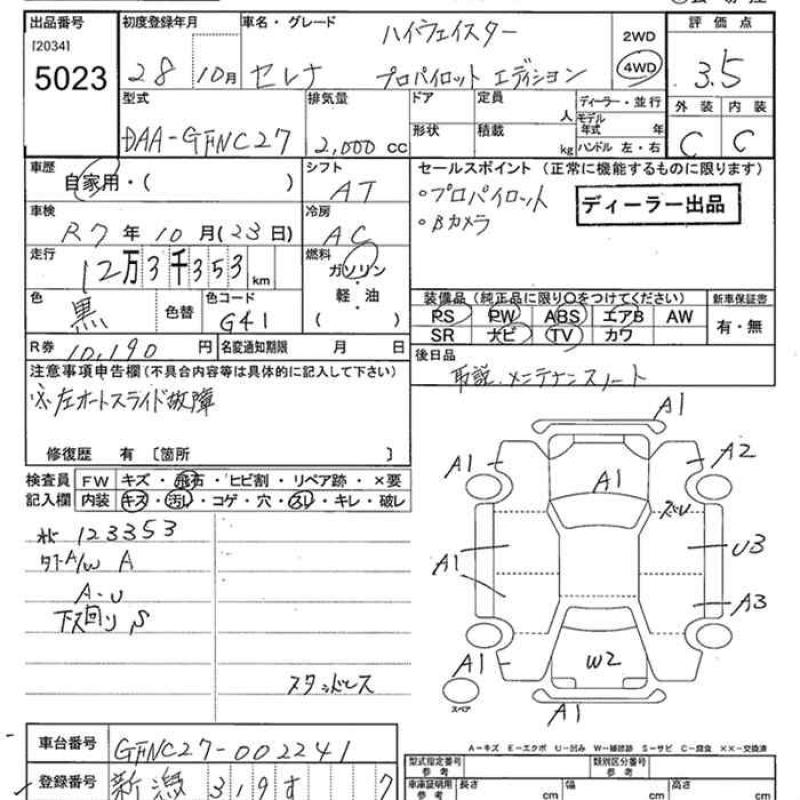 出品番号 初度登録年月 車名・グレード 2WD 評価点
[2034]
5023 28 10月 セレナ ハイウェイスター プロパイロット エディション 4WD 3.5
型式 排気量 ドア 定員 人 ディーラー・並行 外装 内装
DAA-GFNC27 2,000 cc 形状 積載 kg モデル年式 年 ハンドル 左・右 C C
車歴 自家用・( ) シフト AT セールスポイント (正常に機能するものに限ります)
車検 R7年10月(23日) 冷房 AC ・プロパイロット ディーラー出品
・Bカメラ
走行 12万3千353km 燃料 ガソリン・軽・油 ( )
色 黒 色替 色コード G41 装備品 (純正品に限り○をつけてください) 新車保証書
PS PW ABS エアB AW 有・無
SR ナビ TV カワ
R券 10,190円 名変通知期限 月 日 後日品
注意事項申告欄(不具合内容等は具体的に記入して下さい) 取説.メンテナンスノート
※左オートスライド故障
修復歴 有 [箇所 ]
検査員 FW キズ・飛石・ヒビ割・リペア跡・×要
記入欄 内装 キズ・汚レ・コゲ・穴・スレ・キレ・破レ
A1
A1 A2
A1
ズレ
123353
A/W A
A-U
下廻り S
A1 U3
A3
A1 W2
スタッドレス
スペア
A1
A-キズ E-エクボ U-凹み W-補修跡 S-サビ C-腐食 ××-交換済
車台番号 GFNC27-002241
型式指定番号 参考 類別区分番号 参考
登録番号 新潟 319 す 7
車庫証明用 参考 長さ cm 幅 cm 高さ cm